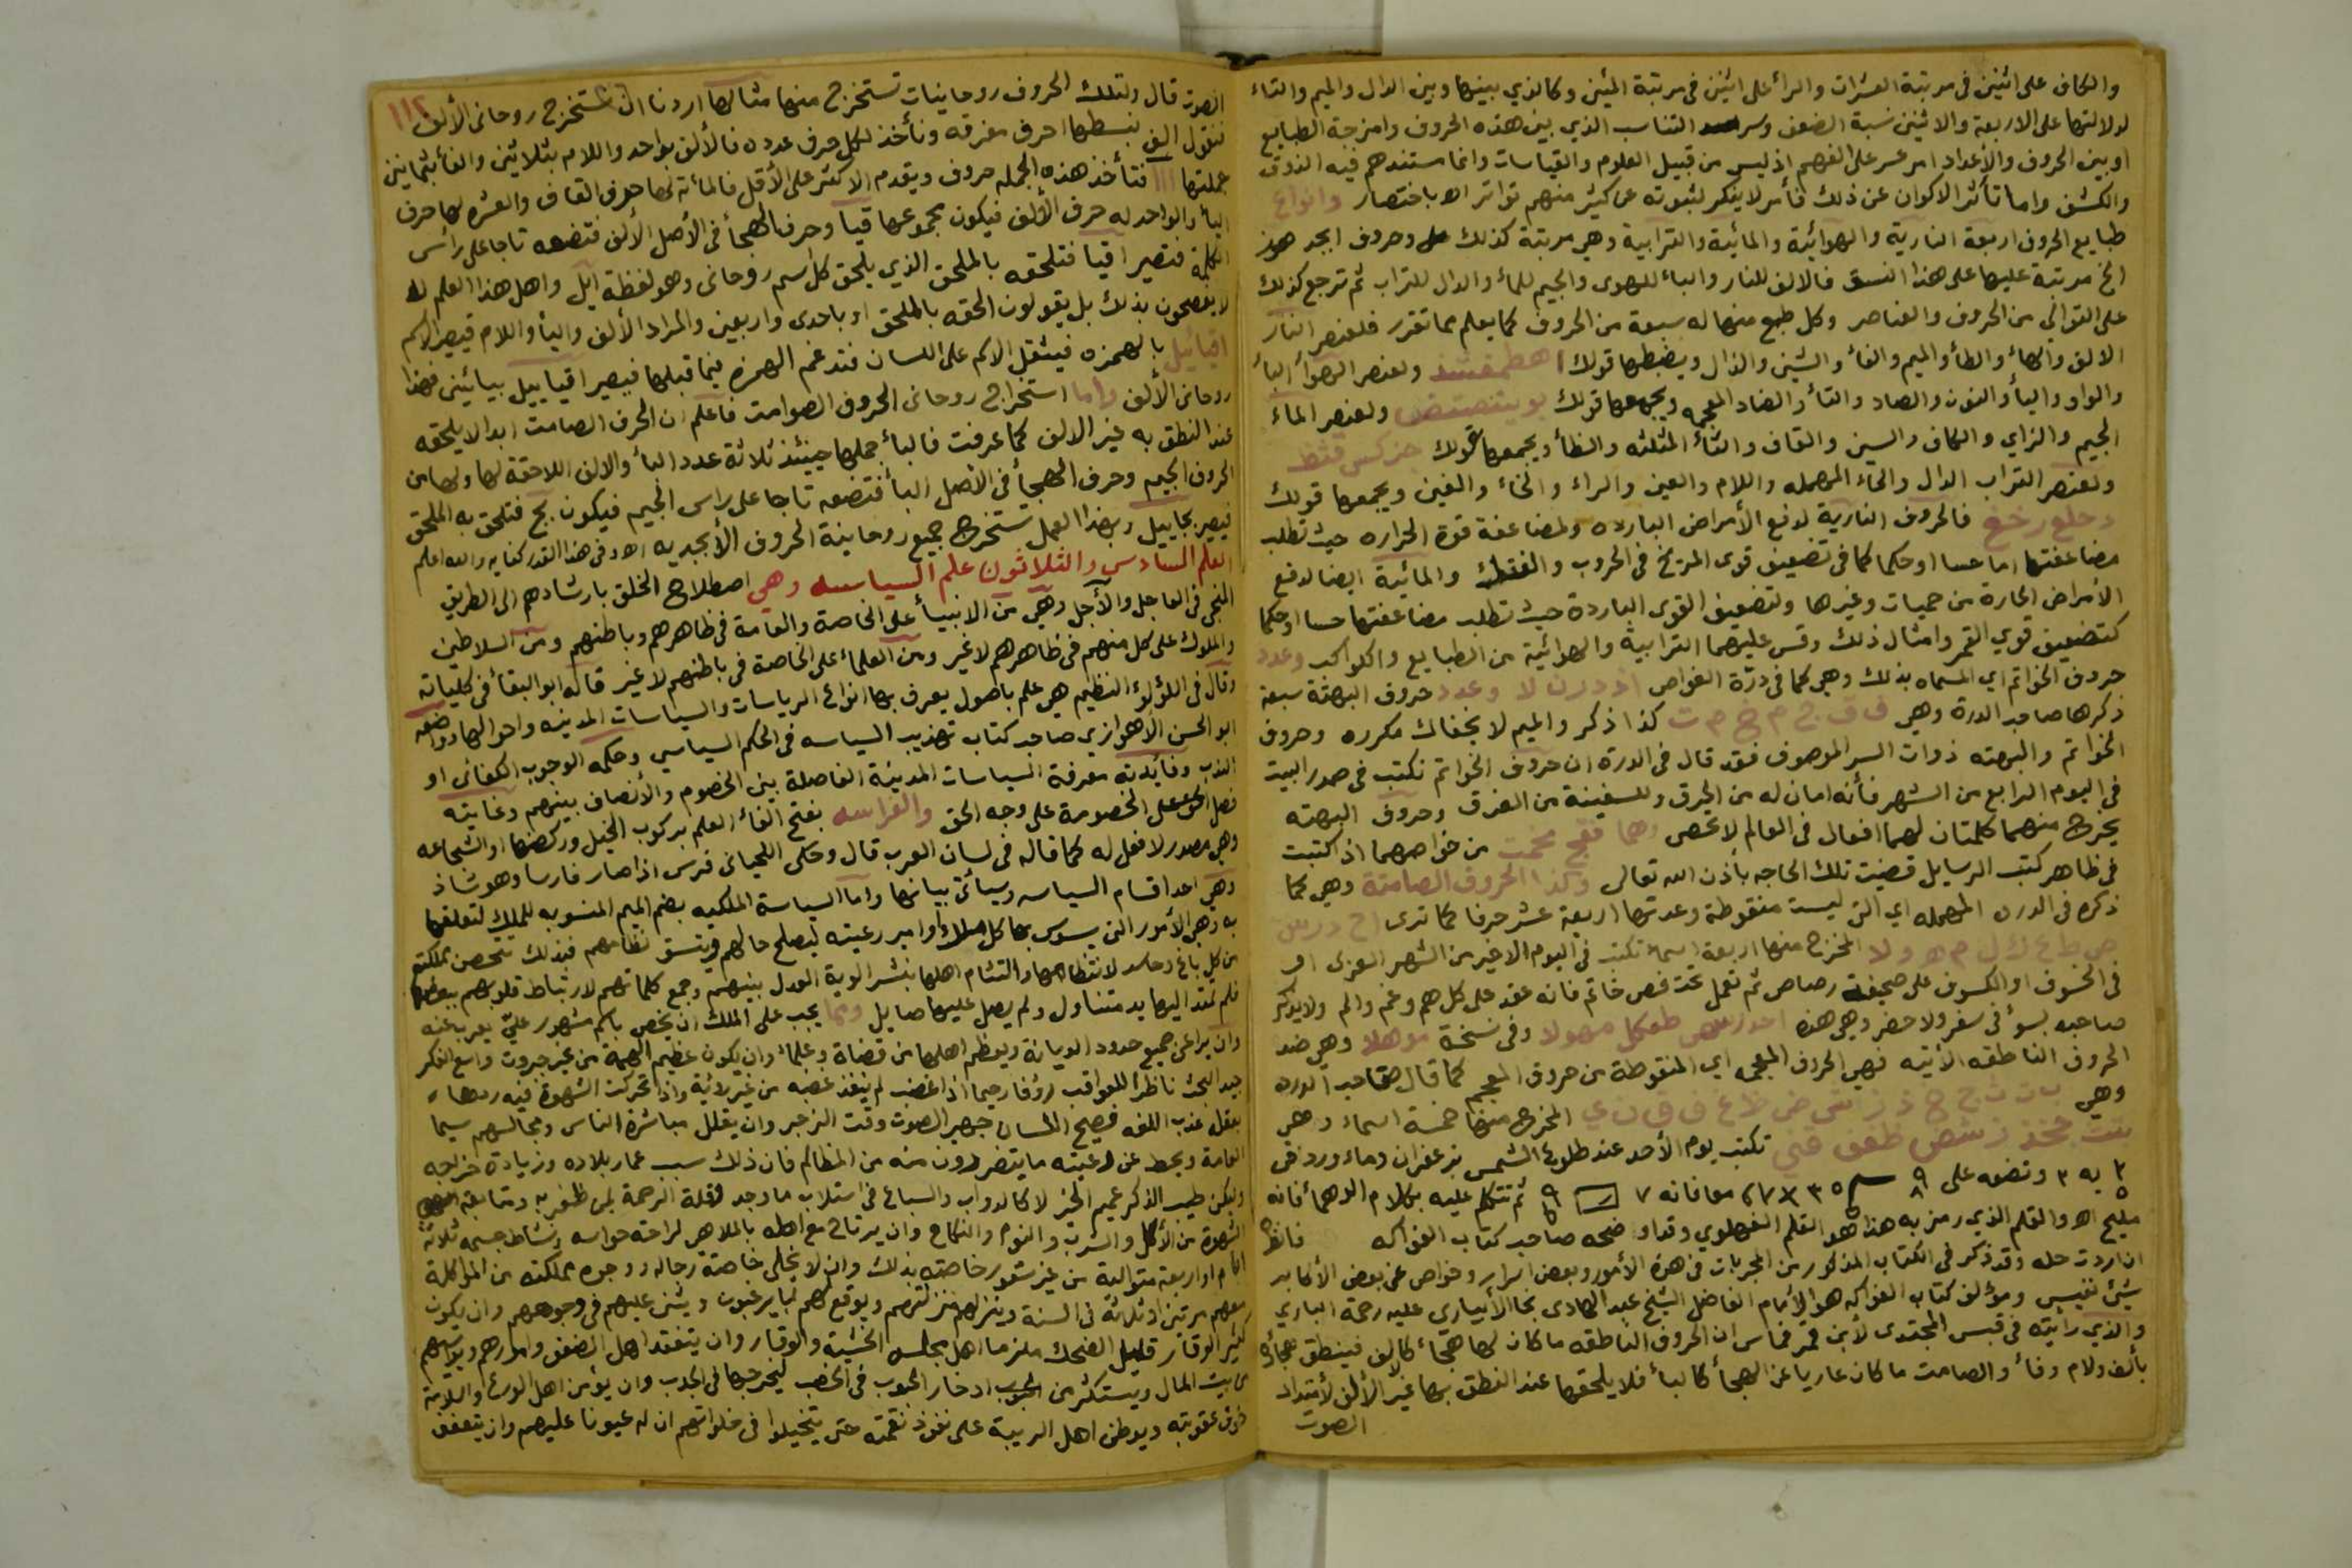 والكاف على اثنين في مرتبة العشرات والرأ على اثنين في مرتبة المئين وكالذي بينها وبين الدال والميم والتاء
لدلالتها على الاربعة والاثنين نسبة الضعف وسر التناسب الذي بين هذه الحروف وامزجة الطبايع
او بين الحروف والأعداد امر عسر على الفهم اذ ليس من قبيل العلوم والقياسات وانما مستندهم فيه الذوق
والكشف واما تأثر الاكوان عن ذلك فأمر لا ينكر لثبوته عن كثير منهم تواترا اه باختصار وانواع
طبايع الحروف اربعة النارية والهوائية والمائية والترابية وهي مرتبة كذلك وحروف ابجد هوز
الخ مرتبة عليها على هذا النسق فالالف للنار والباء للهوى والجيم للماء والدال للتراب ثم ترجع كذلك
على التوالي من الحروف والعناصر وكل طبع منها له سبعة من الحروف كما يعلم مما تقرر فلعنصر النار
الالف والهاء والطأ والميم والفأ والشين والذال ويضبطها قولك اهطمفشذ ولعنصر الهوأ البأ
والواو واليأ والنون والصاد والتأ والضاد المعجمه ويجمعها قولك بوينصتض ولعنصر الماء
الجيم والزاي والكاف والسين والقاف والثأ المثلثه والظأ ويجمعها قولك جزكس قثظ
ولعنصر التراب الدال والحاء المهمله واللام والعين والراء والخاء والغين ويجمعها قولك
دحلع رخغ فالحروف النارية لدفع الأمراض البارده ولمضاعفة قوة الحراره حيث تطلب
مضاعفتها اما حسا او حكما كما في تضعيف قوى المريخ في الحروب والفتك والمائية ايضا لدفع
الأمراض الحارة من حميات وغيرها ولتضعيف القوى الباردة حيث تطلب مضاعفتها حسا او حكما
كتضعيف قوي القمر وامثال ذلك وقس عليهما الترابية والهوائية من الطبايع والكواكب وعدد
حروف الخواتم اي المسماه بذلك وهي كما في درة الغواص ا ذ د ر ن لا و عدد حروف البهتة سبعة
ذكرها صاحب الدرة وهي ف ق ج م خ م ت كذا ذكر والميم لا يخفاك مكرره وحروف
الخواتم والبهته ذوات السر الموصوف فقد قال في الدرة ان حروف الخواتم تكتب في صدر البيت
في اليوم الرابع من الشهر فأنه امان له من الحرق وللسفينة من الغرق وحروف البهته
يخرج منهما كلمتان لهما افعال في العالم لا تحصى وهما فقج مخمت من خواصهما اذ كتبت
في ظاهر كتب الرسايل قضيت تلك الحاجه بأذن الله تعالى وكذا الحروف الصامتة وهي كما
ذكره في الدره المهمله اي التي ليست منقوطة وعدتها اربعة عشر حرفا كما ترى ا ح د ر س
ص ط ع ك ل م ه و لا المخرج منها اربعة اسماء تكتب في اليوم الاخير من الشهر العربي او
في الخسوف او الكسوف على صحيفة رصاص ثم تعمل تحت فص خاتم فانه عقد على كل هم وغم والم ولا يذكر
صاحبه بسوأ في سفر ولا حضر وهي هذه احدرسص طعكل مهولا وفي نسخة موهلا وهي ضد
الحروف الناطقه الأتيه فهي الحروف المعجمه اي المنقوطة من حروف المعجم كما قال صاحب الدره
وهي ب ت ث ج خ ذ ز ش ض ظ غ ف ق ن ي المخرج منها خمسة اسماء وهي
بتث جخذ زشض ظغف قني تكتب يوم الأحد عند طلوع الشمس بزعفران وماء ورد في
ثم تتكلم عليه بكلام الوهمأ فانه
مليح اه والقلم الذي رمز به هذا هو القلم الفهلوي وقد اوضحه صاحب كتاب الفواكه فانظر
ان اردت حله وقد ذكر في الكتاب المذكور من المجربات في هذه الأمور وبعض اسرار وخواص عن بعض الأكابر
شيئ نفيس ومؤلف كتاب الفواكه هو الأمام الفاضل الشيخ عبد الهادي نجا الأبياري عليه رحمة الباري
والذي رأيته في قبس المجتدى لأبن قرقماس ان الحروف الناطقه ما كان لها هجاء كالف فينطق
بألف ولام وفأ والصامت ما كان عاريا عن الهجأ كالبأ فلا يلحقها عند النطق بها غير الألف لأمتداد
الصوت
١١٢
الصوت قال ولتلك الحروف روحانيات تستخرج منها مثالها اردنا ان نستخرج روحاني الألف
فنقول الف نبسطها احرف مفرقه ونأخذ لكل حرف عدده فالألف بواحد واللام بثلاثين والفأ بثمانين
جملتها ١١١ فتأخذ هذه الجمله حروف ويقدم الاكثر على الأقل فالمأته لها حرف القاف والعشره لها حرف
اليأ والواحد له حرف الألف فيكون مجموعها قيا وحرف الهجأ في الأصل الألف فتضعه تاجا على رأس
الكلمة فتصير اقيا فتلحقه بالملحق الذي يلحق كل اسم روحاني وهو لفظة ايل واهل هذا العلم
لا يفصحون بذلك بل يقولون الحقه بالملحق او باحدى واربعين والمراد الألف واليأ واللام فيصير الاسم
اقيائيل بالهمزه فيثقل الاسم على اللسان فتدغم الهمزه فيما قبلها فيصير اقياييل بيائين فهذا
روحاني الألف واما استخراج روحاني الحروف الصوامت فاعلم ان الحرف الصامت ابدا لا يلحقه
عند النطق به غير الالف كما عرفت فالبأ جملها حينئذ ثلاثة عدد البأ والالف اللاحقة لها ولها من
الحروف الجيم وحرف الهجأ في الأصل البأ فتضعه تاجا على راس الجيم فيكون بج فتلحق به الملحق
فيصير بجاييل وبهذا العمل تستخرج جميع روحانية الحروف الأبجديه اه وفي هذا القدر كفايه والله اعلم
العلم السادس والثلاثون علم السياسه وهي اصطلاح الخلق بارشادهم الى الطريق
المنجي في العاجل والآجل وهي من الانبيأ على الخاصة والعامة في ظاهرهم وباطنهم ومن السلاطين
والملوك على كل منهم في ظاهرهم لا غير ومن العلماء على الخاصة في باطنهم لا غير قاله ابو البقأ في كلياته
وقال في اللؤلؤ النظيم هي علم باصول يعرف بها انواع الرياسات والسياسات المدينه واحوالها وواضعه
ابو الحسن الاهوازي صاحب كتاب تهذيب السياسه في الحكم السياسي وحكمه الوجوب الكفائي او
الندب وفائدته معرفة السياسات المدينية الفاصلة بين الخصوم والأنصاف بينهم وغايته
فصل الخصومة على وجه الحق والفراسه بفتح الفأ العلم بركوب الخيل وركضها او الشجاعه
وهي مصدر لا فعل له كما قاله في لسان العرب قال وحكى اللحياني فرس اذا صار فارسا وهو شاذ
وهي احد اقسام السياسه وسيأتي بيانها واما السياسة الملكيه بضم الميم المنسوبه للملك لتعلقها
به وهي الأمور التي يسوس بها كل اوامر رعيته ليصلح حالهم ويتسق نظامهم فبذلك تحصن مملكته
من كل باغ وحاسد لانتظامها والتئام اهلها بنشر الوية العدل بينهم وجمع كلماتهم لارتباط قلوبهم ببعضها
فلم تمتد اليها يد متناول ولم يصل عليها صايل ومما يجب على الملك ان يخص باسم مشهور عليّ يعرب عنه
وان يراعي جميع حدود الديانة ويعظم اهلها من قضاة وعلماء وان يكون عظيم الهمة من غير جبروت واسع الفكر
جيد البحث ناظرا للعواقب رؤفا رحيما اذا غضب لم ينفذ غضبه من غير روية واذا تحركت الشهوة فيه ردها
بعقله عذب اللفه فصيح اللسان جهير الصوت وقت الزجر وان يقلل مباشرة الناس ومجالسهم سيما
العامة ويحط عن رعيته ما يتضررون منه من المظالم فان ذلك سبب عمار بلاده وزيادة خراجه
وليكن طيب الذكر عميم الخير لا كالدواب والسباع في استلاب ما وجد وقلة الرحمة لمن ظفر به ومتابعة
الشهوة من الأكل والشرب والنوم والنكاح وان يرتاح مع اهله بالملاهي لراحة حواسه ونشاط جسمه ثلاثة
ايام او اربعة متوالية من غير شعور خاصته بذلك وان لا يخلي خاصة رجاله ووجوه مملكته من المؤاكلة
معهم مرتين او ثلاثة في السنة وينزلهم منزلتهم ويوقع لهم لما يرغبون ويثني عليهم في وجوههم وان يكون
كثير الوقار قليل الضحك ملزما اهل مجلسه الخشية والوقار وان يتفقد اهل الضعف وامورهم ويواسيهم
من بيت المال ويستكثر من ادخار الحبوب في الخصب ليخرجها في الجدب وان يؤمن اهل الورع والسلامة
خوف عقوبته ويوطن اهل الريبة على نفوذ نقمته حتى يتخيلوا في خلواتهم ان له عيونا عليهم وان يتعفف